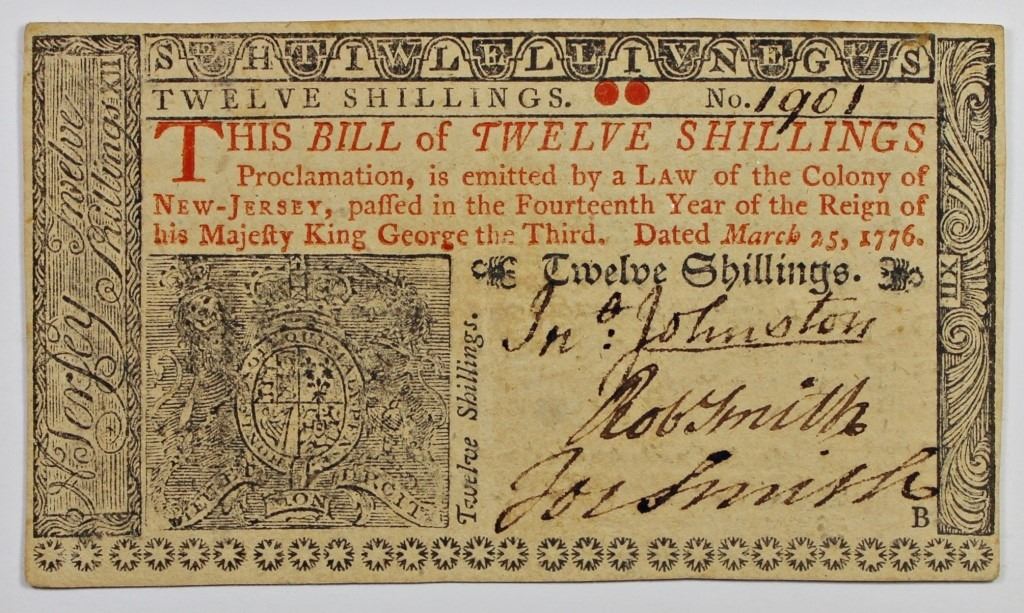 S H T I W L E L L I V N E G 12/ S
TWELVE SHILLINGS. No. 1901
THIS BILL of TWELVE SHILLINGS
Proclamation, is emitted by a LAW of the Colony of
NEW-JERSEY, paſſed in the Fourteenth Year of the Reign of
his Majeſty King George the Third. Dated March 25, 1776.
Twelve Shillings.
Jnº: Johnston
Rob Smith
Jos Smith
B
Twelve Shillings.
N. Jerſey Twelve
Shillings XII
XII
HONI SOIT QUI MAL Y PENSE
DIEU ET MON DROIT